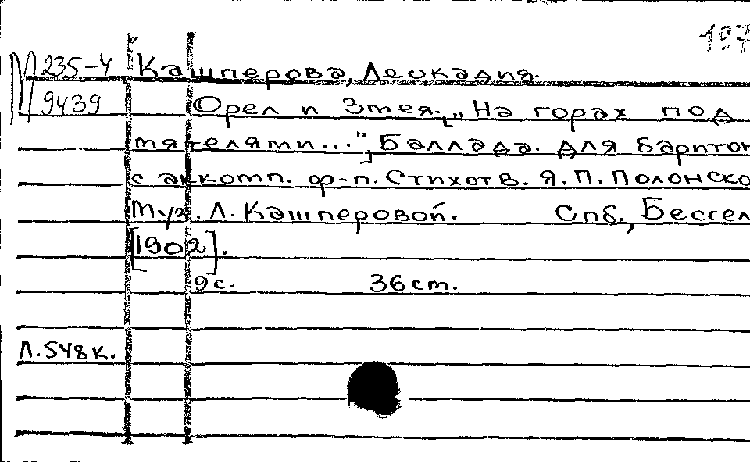 197
М 235-4 Кашперова, Леокадия.
9439 Орел и Змея. ["На горах под
мятелями..."] Баллада. Для баритон
с аккомп. ф-п. Стихотв. Я.П. Полонско
Муз. Л. Кашперовой. Спб., Бессел
[1902].
9с. 36 ст.
Л. 548к.